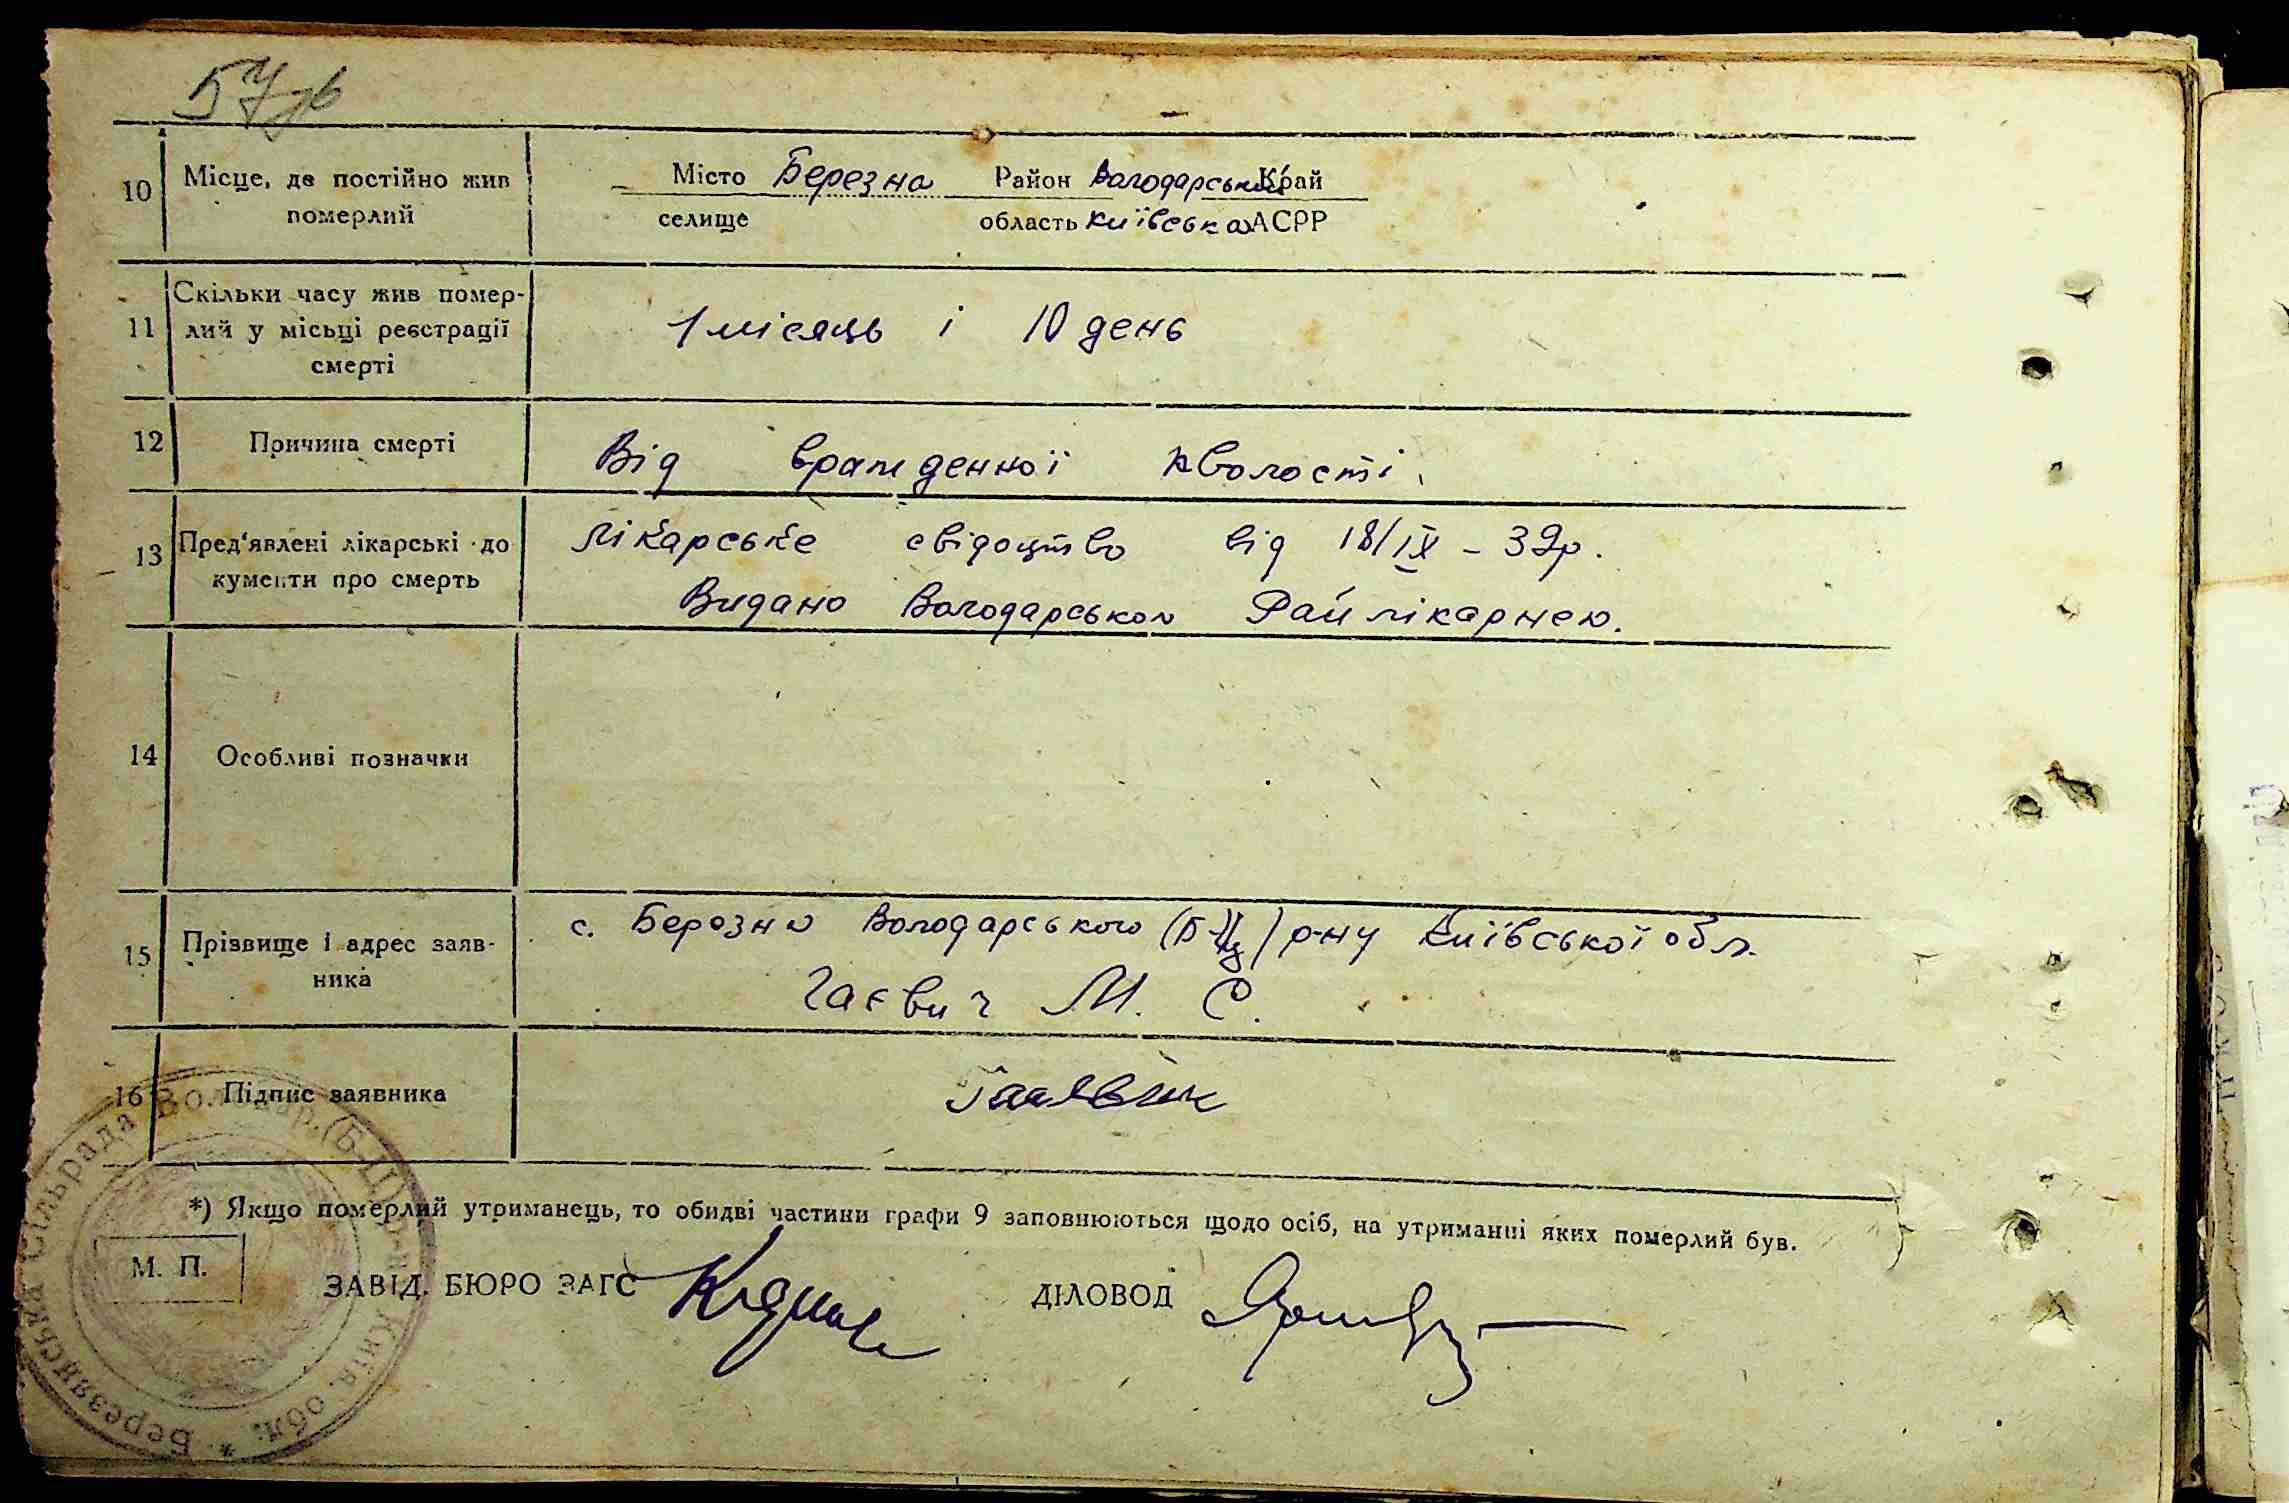 57 зв
10 Місце, де постійно жив померлий
Місто Березна Район Володарський Край
селище область київська АСРР
11 Скільки часу жив помер-
лий у місьці реєстрації
смерті
1 місяць і 10 день
12 Причина смерті
Від врожденної кволості.
13 Пред'явлені лікарські до
кументи про смерть
лікарське свідоцтво від 18/IX – 39р.
Видано Володарською Райлікарнею.
14 Особливі позначки
15 Прізвище і адрес заяв-
ника
с. Березни Володарського (Б-Ц) р-ну Київської обл.
Гаєвич М. С.
16 Підпис заявника
*) Якщо померлий утриманець, то обидві частини графи 9 заповнюються щодо осіб, на утриманні яких померлий був.
М. П.
ЗАВІД. БЮРО ЗАГС
ДІЛОВОД
Березянська Сільрада Володар. (Б-Ц) р-н Київ. обл. *